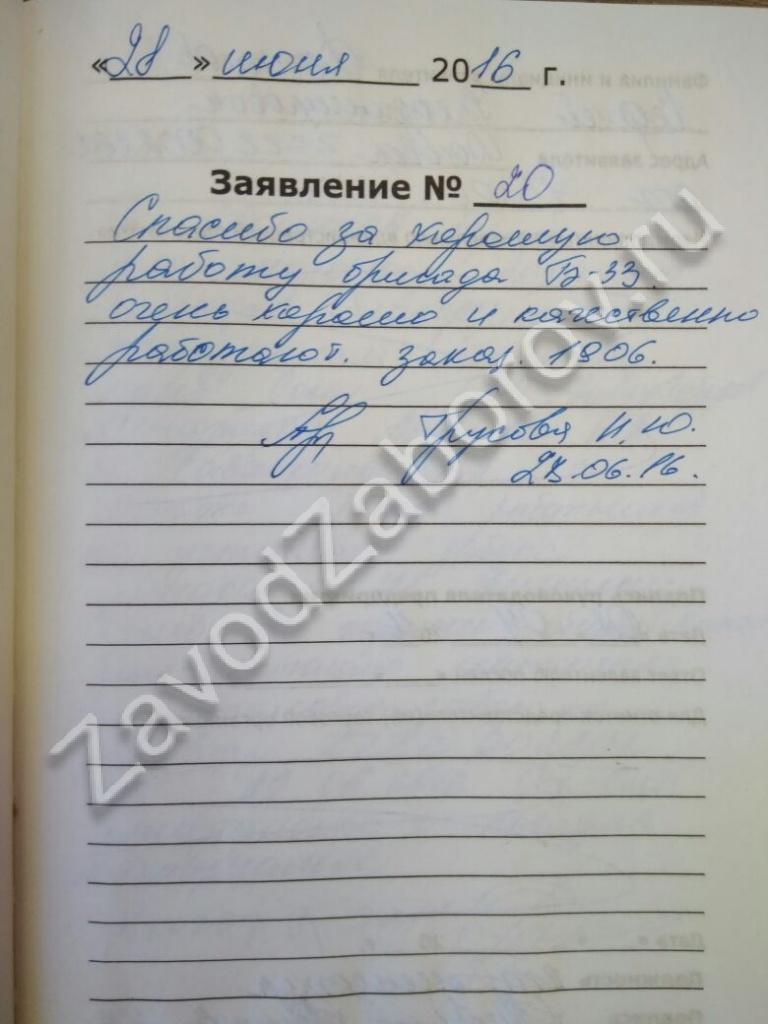 «28» июня 2016 г.
Заявление № 20
Спасибо за хорошую
работу бригада Б-33.
очень хорошо и качественно
работают. заказ. 1806.
Трусовя И.Ю.
ZavodZaborov.ru